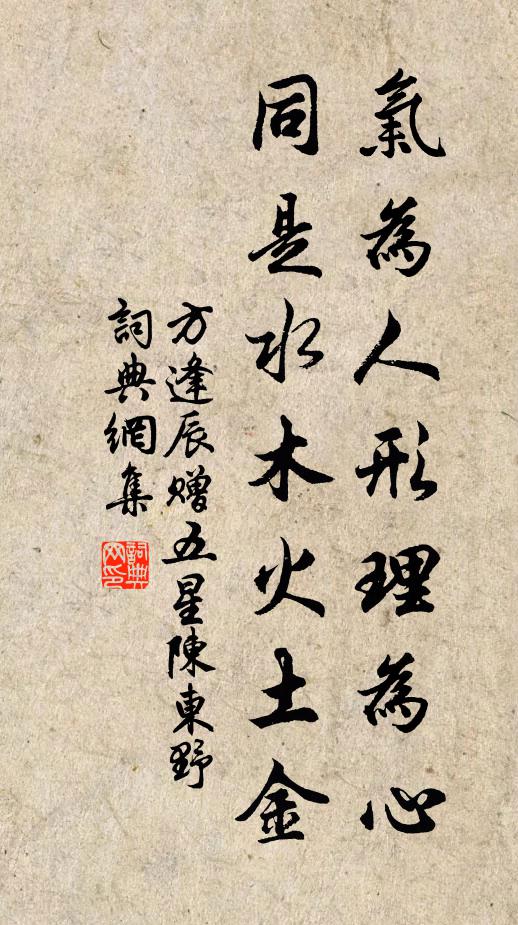 氣為人形理為心
同是水木火土金
方逢辰赠五星陳東野
詞典網集
詞典
网印